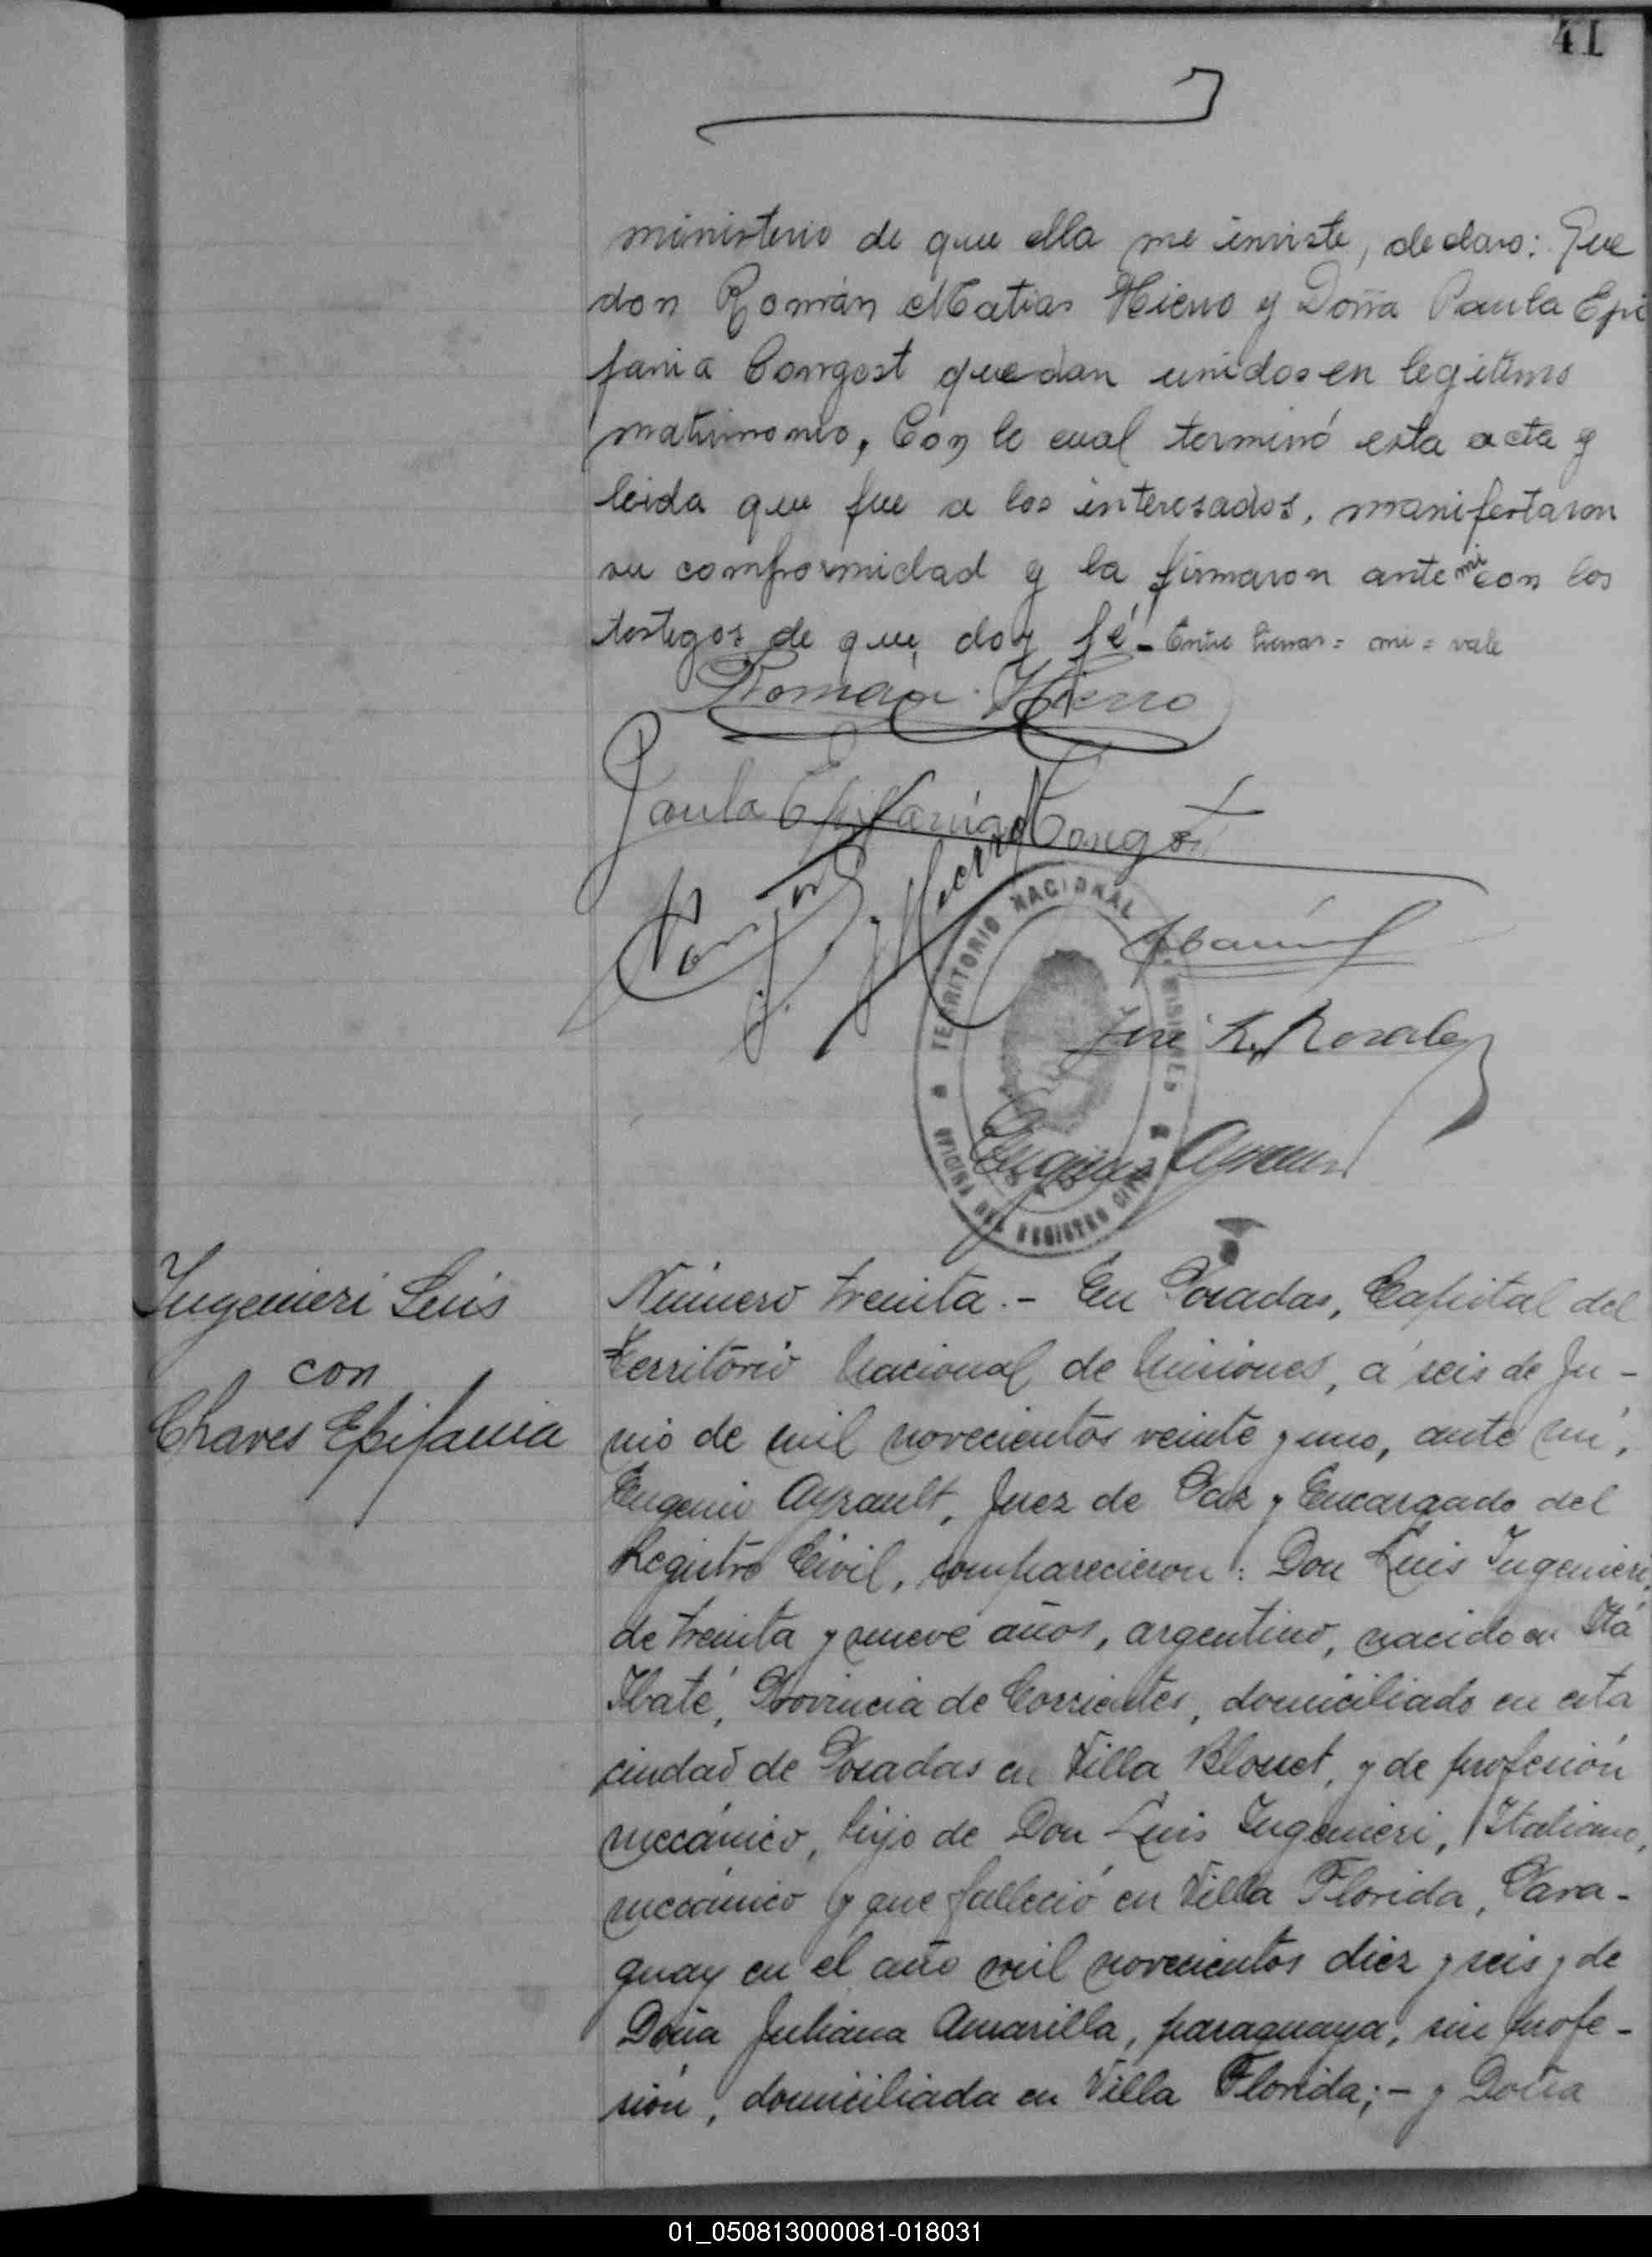 41
ministerio de que ella me inviste, declaro: Que
don Román Matias Hierro y Doña Paula Epi
fania Congost quedan unidos en legitimo
matrimonio, Con lo cual terminó esta acta y
leida que fue a los interesados, manifestaron
su comformidad y la firmaron ante mi con los
testigos de que doy fé - Entre lineas = mi = vale
Román Hierro
Paula Epifania Congost
Hierro
TERRITORIO NACIONAL MISIONES
José R. Rosales
OFICINA DEL REGISTRO CIVIL
Eugenio Ayrault
Ingenieri Luis
con
Chaves Epifania
Número treinta.- En Posadas, Capital del
Territorio Nacional de Misiones, á seis de Ju-
nio de mil novecientos veinte y uno, ante mi,
Eugenio Ayrault, Juez de Paz y Encargado del
Registro Civil, comparecieron: Don Luis Ingenieri,
de treinta y nueve años, argentino, nacido en Itá
Ibaté, Provincia de Corrientes, domiciliado en esta
ciudad de Posadas en Villa Blouet, y de profesión
mecánico, hijo de Don Luis Ingenieri, Italiano,
mecánico y que falleció en Villa Florida, Para-
guay en el año mil novecientos diez y seis y de
Doña Juliana Amarilla, paraguaya, sin profe-
sión, domiciliada en Villa Florida;- y Doña
01_050813000081-018031